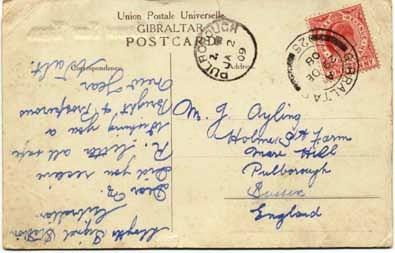 Union Postale Universelle
GIBRALTAR
POSTCARD
Correspondence.
Address
PULBOROUGH
JA 2
09
GIBRALTAR
08
M. G. Ayling
Holmes Farm
Mare Hill
Pulborough
Sussex
England
Lloyds Signal Station
Gibraltar
Dear M.
Did you receive
R. Letter all safe
Wishing you a
Bright & Prosperous
New Year
Walt